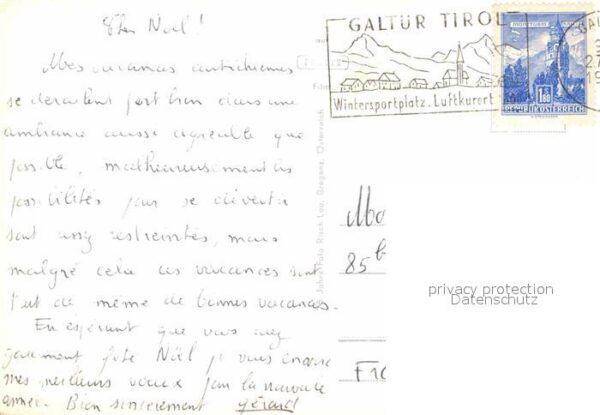 Noël !
Mes vacances autrichiennes
se déroulent fort bien dans une
ambiance aussi agréable que
possible, malheureusement les
possibilités pour se divertir
sont assez restreintes, mais
malgré cela ces vacances sont
tout de même de bonnes vacances.
En espérant que vous avez
gaiement fêté Noël je vous envoie
mes meilleurs voeux pour la nouvelle
année. Bien sincèrement Gérard
GALTÜR TIROL
Wintersportplatz. Luftkurort
1.80
REPUBLIK ÖSTERREICH
27
Foto Risch-Lau, Bregenz, Österreich
85 b
privacy protection
Datenschutz